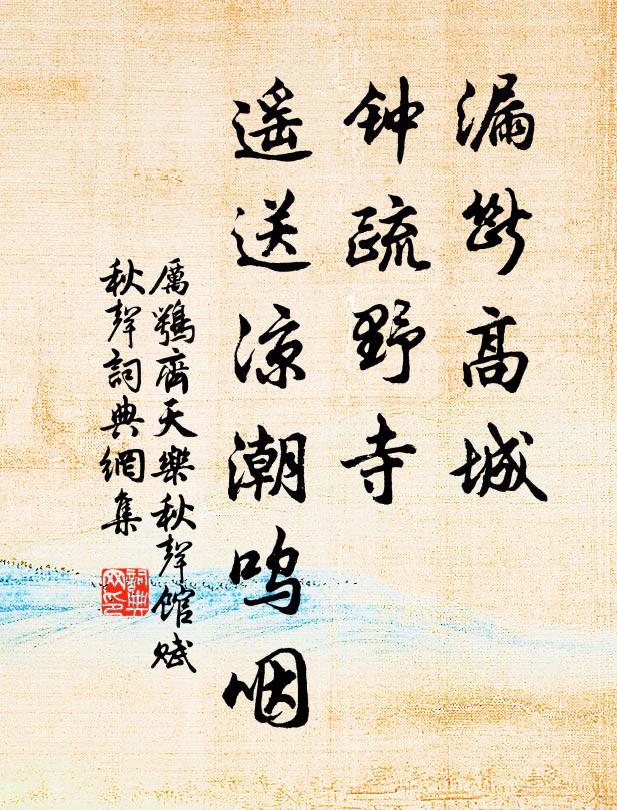 漏斷高城
钟疏野寺
遥送涼潮呜咽
厲鶚齊天樂秋聲館賦
秋聲詞典網集
詞典